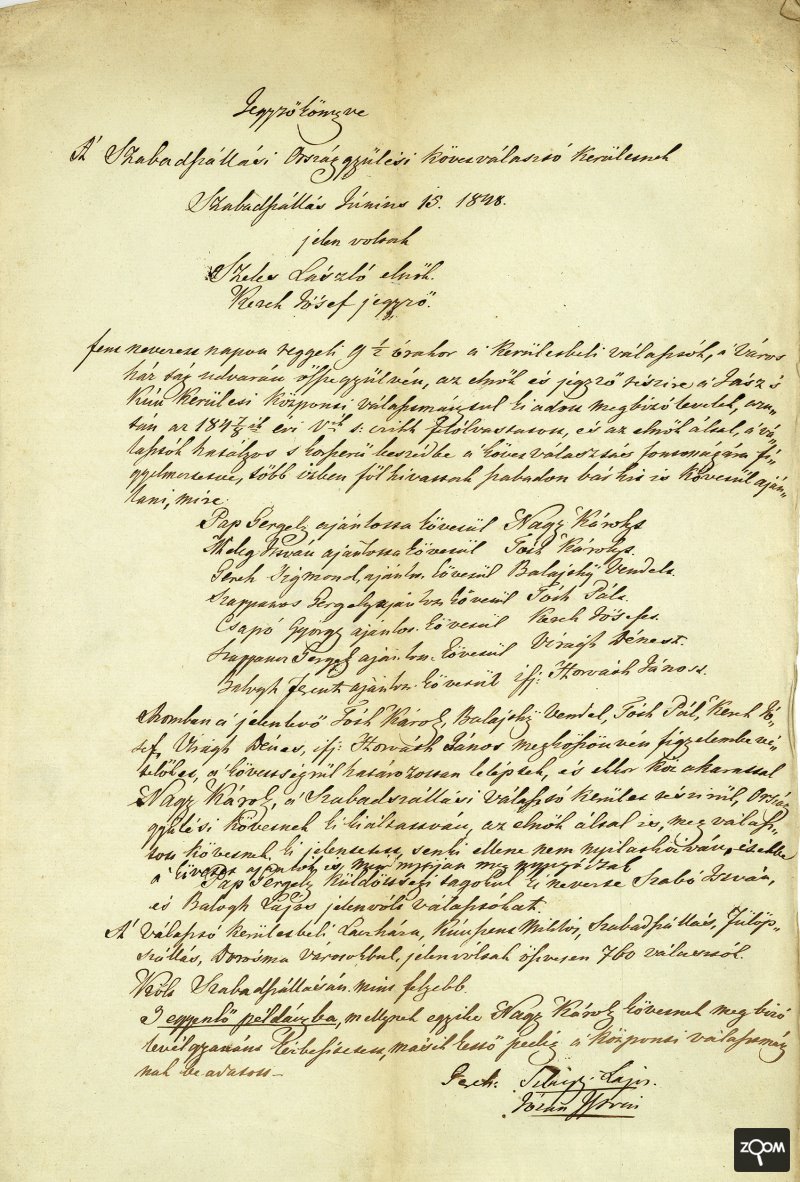 Jegyzőkönyve
A' Szabadszállási Országgyűlési követválasztó kerületnek
Szabadszállás Június 15. 1848.
jelen voltak
Szeles László elnök.
Kerek Jósef jegyző.
fent nevezett napon reggeli 9 1/2 órakor a' kerületbeli választók, a' Város
ház tág udvarán öszvegyülvén, az elnök és jegyző részire a' Jász és
Kún Kerületi központi választmánytul ki adott megbizó levelek, azu-
tán az 184 7/8 ik évi V ik t. czikk felólvastatott, és az elnök által, a' vá-
lasztók hatályos s korszerű beszédbe a' követválasztás fontosságára fi-
gyelmeztetve, több izben fölhivattak szabadon bárkit is követül aján-
lani, mire
Pap Gergely ajánlotta követül Nagy Károlyt
Meleg István ajánlotta követül Tóth Károlyt.
Gerek Zigmond, ajánlot. követül Balajthy Vendelt.
Szappanos Gergely ajánlot. követül Tóth Pált.
Csapó György ajánlot. követül Kerek Jósefet.
Szappanos Gergely ajánlot. követül Virágh Dénest.
Balogh Ferentz ajánlot. követül ifj: Horváth Jánost.
Azomban a' jelenlevő Tóth Károly, Balajthy Vendel, Tóth Pál, Kerek Jó-
sef, Virágh Dénes, ifj: Horváth János megköszönvén figyelembe vé-
telöket, a' követségrül határozottan léléptek, és ekkor köz akarattal
Nagy Károly, a' Szabadszállási Választó kerület részirül, Ország
gyülési követnek ki kiáltatván, az elnök által is, meg válasz-
tott követnek ki jelentetett, senki ellene nem nyilatkozván, és ebbe
a' követet ajánlók is,
Pap Gergely küldöttségi tagokul ki nevezte Szabó István,
és Balogh Lajos jelenvóló választókat.
A' Választó kerületbeli Laczháza, Kúnszent Miklós, Szabadszállás, Fülöp-
szállás, Dorosma Városokbul, jelen voltak öszvesen 760 választók.
Költ Szabadszállásán mint feljebb.
3 egyenlő példányba, mellynek egyike Nagy Károly követnek megbizó
levél gyanánt kézbesittetett, másik kettő pedig a' központi választmány
nak be adatott